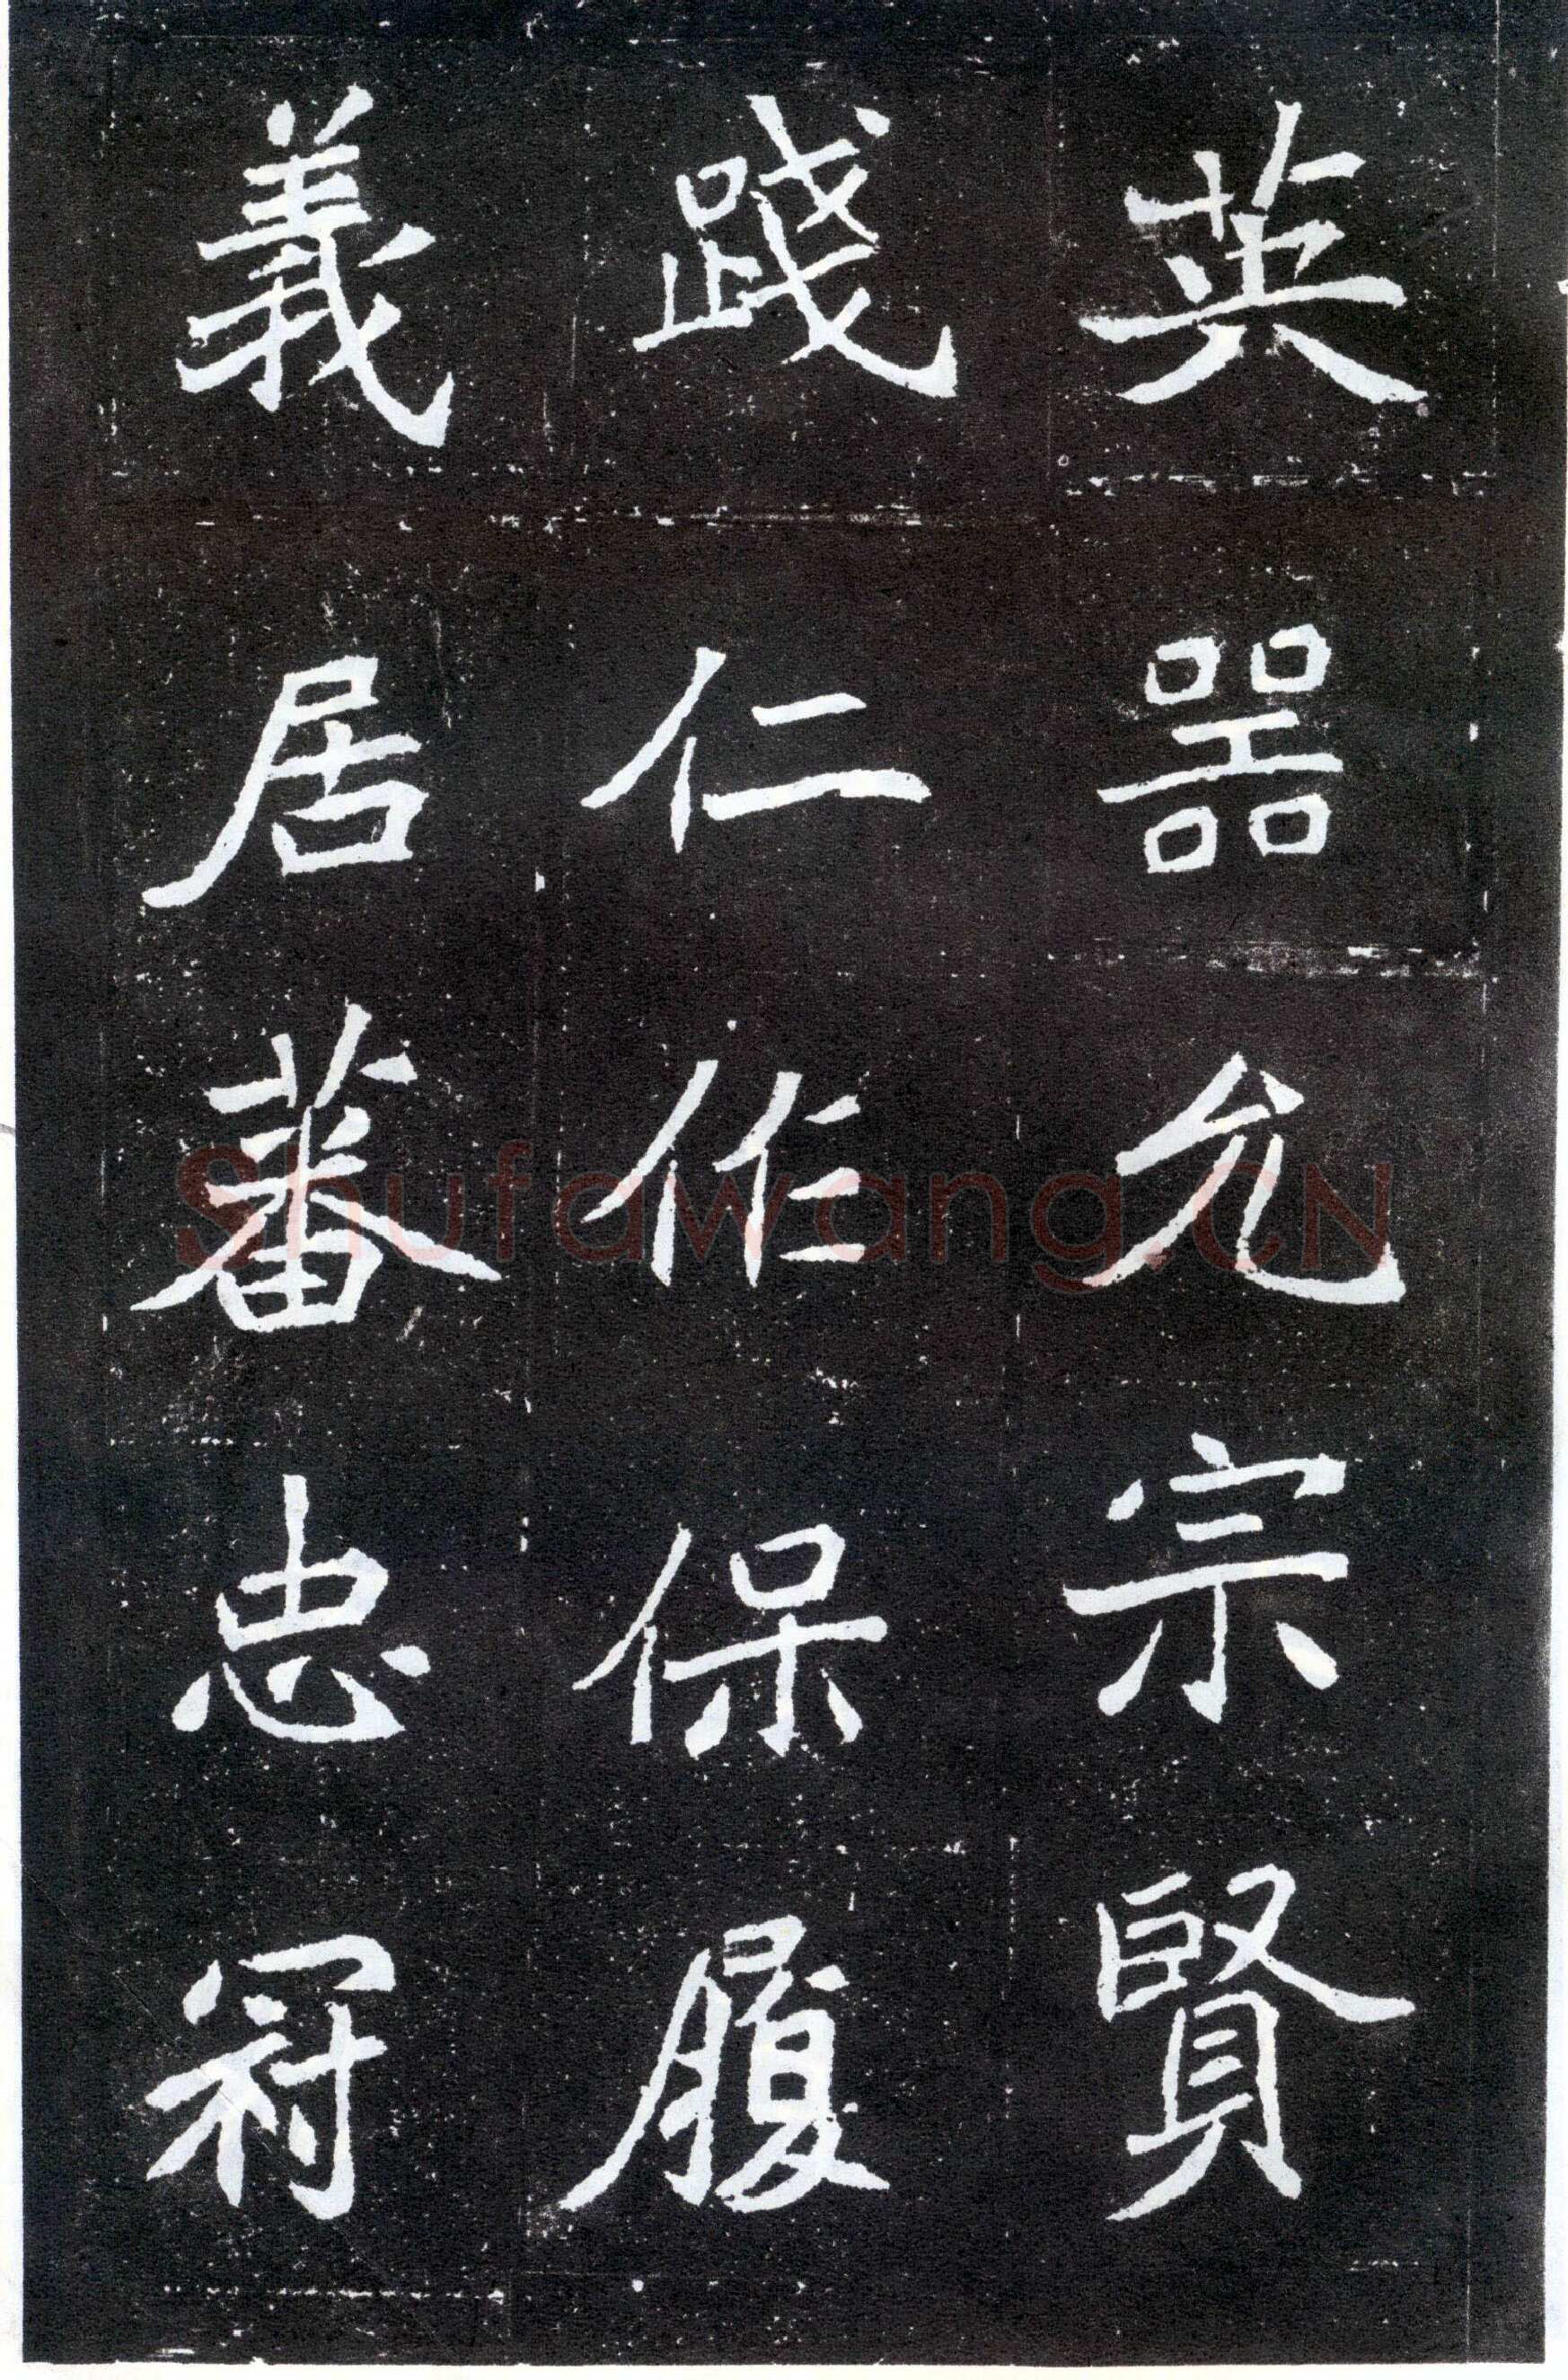 英器允宗賢
踐仁作保履
義居蕃忠冠
Shufawang.CN